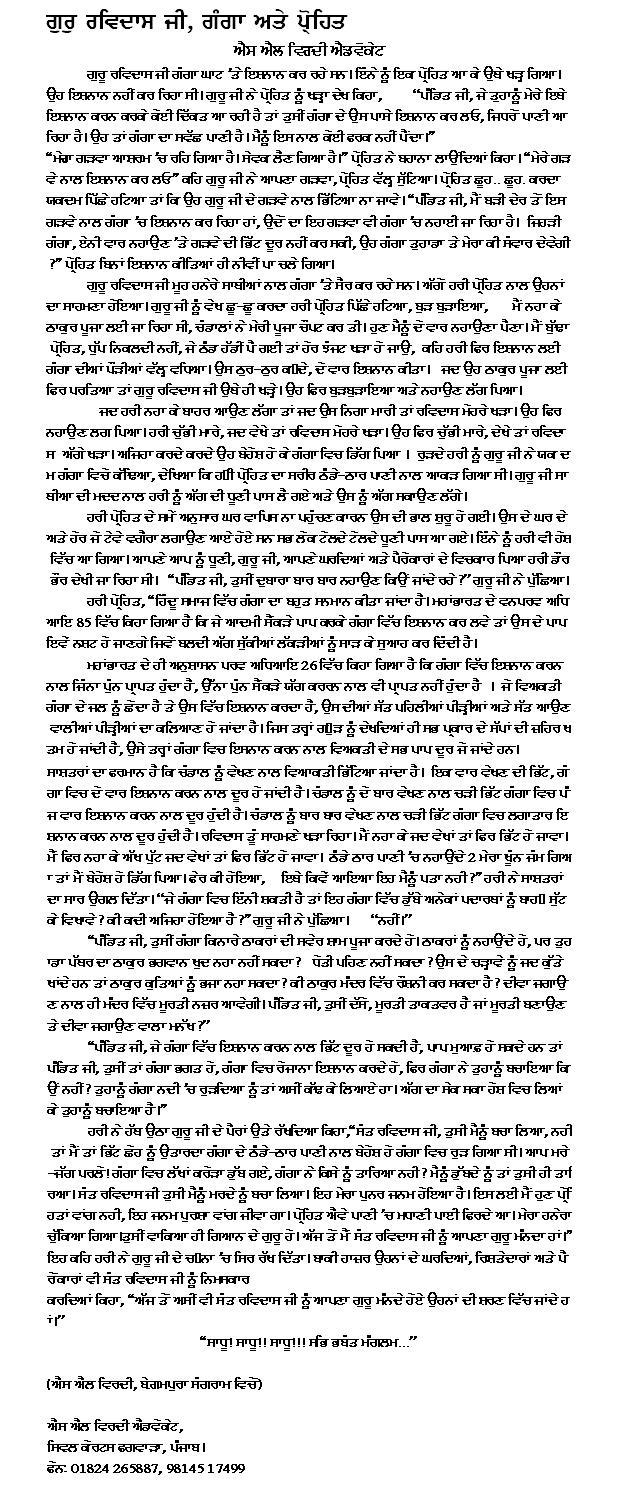 ਗੁਰੁ ਰਵਿਦਾਸ ਜੀ, ਗੰਗਾ ਅਤੇ ਪ੍ਰੋਹਿਤ
ਐਸ ਐਲ ਵਿਰਦੀ ਐਡਵੋਕੇਟ
ਗੁਰੂ ਰਵਿਦਾਸ ਜੀ ਗੰਗਾ ਘਾਟ ’ਤੇ ਇਸ਼ਨਾਨ ਕਰ ਰਹੇ ਸਨ। ਇੰਨੇ ਨੂੰ ਇਕ ਪ੍ਰੋਹਿਤ ਆ ਕੇ ਉਥੇ ਖੜ੍ਹ ਗਿਆ।
ਉਹ ਇਸ਼ਨਾਨ ਨਹੀਂ ਕਰ ਰਿਹਾ ਸੀ। ਗੁਰੂ ਜੀ ਨੇ ਪ੍ਰੋਹਿਤ ਨੂੰ ਖੜ੍ਹਾ ਦੇਖ ਕਿਹਾ, “ਪੰਡਿਤ ਜੀ, ਜੇ ਤੁਹਾਨੂੰ ਮੇਰੇ ਇਥੇ
ਇਸ਼ਨਾਨ ਕਰਨ ਕਰਕੇ ਕੋਈ ਦਿੱਕਤ ਆ ਰਹੀ ਹੈ ਤਾਂ ਤੁਸੀਂ ਗੰਗਾ ਦੇ ਉਸ ਪਾਸੇ ਇਸ਼ਨਾਨ ਕਰ ਲਓ, ਜਿਧਰੋਂ ਪਾਣੀ ਆ
ਰਿਹਾ ਹੈ। ਉਹ ਤਾਂ ਗੰਗਾ ਦਾ ਸਵੱਛ ਪਾਣੀ ਹੈ। ਮੈਨੂੰ ਇਸ ਨਾਲ ਕੋਈ ਫਰਕ ਨਹੀਂ ਪੈਂਦਾ।”
“ਮੇਰਾ ਗੜਵਾ ਆਸ਼ਰਮ ’ਚ ਰਹਿ ਗਿਆ ਹੈ। ਸੇਵਕ ਲੈਣ ਗਿਆ ਹੈ।” ਪ੍ਰੋਹਿਤ ਨੇ ਬਹਾਨਾ ਲਾਉਂਦਿਆਂ ਕਿਹਾ। “ਮੇਰੇ ਗੜ
ਵੇ ਨਾਲ ਇਸ਼ਨਾਨ ਕਰ ਲਓ” ਕਹਿ ਗੁਰੂ ਜੀ ਨੇ ਆਪਣਾ ਗੜਵਾ, ਪ੍ਰੋਹਿਤ ਵੱਲ੍ਹ ਸੁੱਟਿਆ। ਪ੍ਰੋਹਿਤ ਛੂਹ.. ਛੂਹ. ਕਰਦਾ
ਯਕਦਮ ਪਿੱਛੇ ਹਟਿਆ ਤਾਂ ਕਿ ਉਹ ਗੁਰੂ ਜੀ ਦੇ ਗੜਵੇ ਨਾਲ ਭਿੱਟਿਆ ਨਾ ਜਾਵੇ। “ਪੰਡਿਤ ਜੀ, ਮੈਂ ਬੜੀ ਦੇਰ ਤੋਂ ਇਸ
ਗੜਵੇ ਨਾਲ ਗੰਗਾ ’ਚ ਇਸ਼ਨਾਨ ਕਰ ਰਿਹਾ ਹਾਂ, ਉਦੋਂ ਦਾ ਇਹ ਗੜਵਾ ਵੀ ਗੰਗਾ ’ਚ ਨਹਾਈ ਜਾ ਰਿਹਾ ਹੈ। ਜਿਹੜੀ
ਗੰਗਾ, ਏਨੀ ਵਾਰ ਨਹਾਉਣ ’ਤੇ ਗੜਵੇ ਦੀ ਭਿੱਟ ਦੂਰ ਨਹੀਂ ਕਰ ਸਕੀ, ਉਹ ਗੰਗਾ ਤੁਹਾਡਾ ਤੇ ਮੇਰਾ ਕੀ ਸੰਵਾਰ ਦੇਵੇਗੀ
?” ਪ੍ਰੋਹਿਤ ਬਿਨਾਂ ਇਸ਼ਨਾਨ ਕੀਤਿਆਂ ਹੀ ਨੀਵੀਂ ਪਾ ਚਲੇ ਗਿਆ।
ਗੁਰੂ ਰਵਿਦਾਸ ਜੀ ਮੂਹ ਹਨੇਰੇ ਸਾਥੀਆਂ ਨਾਲ ਗੰਗਾ ’ਤੇ ਸੈਰ ਕਰ ਰਹੇ ਸਨ। ਅੱਗੋਂ ਹਰੀ ਪ੍ਰੋਹਿਤ ਨਾਲ ਉਹਨਾਂ
ਦਾ ਸਾਹਮਣਾ ਹੋਇਆ। ਗੁਰੂ ਜੀ ਨੂੰ ਵੇਖ ਛੂ-ਛੂ ਕਰਦਾ ਹਰੀ ਪ੍ਰੋਹਿਤ ਪਿੱਛੇ ਹਟਿਆ, ਬੁੜ ਬੁੜਾਇਆ, ਮੈਂ ਨਹਾ ਕੇ
ਠਾਕੁਰ ਪੂਜਾ ਲਈ ਜਾ ਰਿਹਾ ਸੀ, ਚੰਡਾਲਾਂ ਨੇ ਮੇਰੀ ਪੂਜਾ ਚੌਪਟ ਕਰ ਤੀ। ਹੁਣ ਮੈਨੂੰ ਦੋ ਵਾਰ ਨਹਾਉਣਾ ਪੈਣਾ। ਮੈਂ ਬੁੱਢਾ
ਪ੍ਰੋਹਿਤ, ਧੁੱਪ ਨਿਕਲਦੀ ਨਹੀਂ, ਜੇ ਠੰਡ ਹੱਡੀਂ ਪੈ ਗਈ ਤਾਂ ਹੋਰ ਝੰਜਟ ਖੜਾ ਹੋ ਜਾਊ, ਕਹਿ ਹਰੀ ਫਿਰ ਇਸ਼ਨਾਨ ਲਈ
ਗੰਗਾ ਦੀਆਂ ਪੌੜੀਆਂ ਵੱਲ੍ਹ ਵਧਿਆ। ਉਸ ਠੁਰ-ਠੁਰ ਕ੍ਰਦੇ, ਦੋ ਵਾਰ ਇਸ਼ਨਾਨ ਕੀਤਾ। ਜਦ ਉਹ ਠਾਕੁਰ ਪੂਜਾ ਲਈ
ਫਿਰ ਪਰਤਿਆ ਤਾਂ ਗੁਰੂ ਰਵਿਦਾਸ ਜੀ ਉਥੇ ਹੀ ਖੜ੍ਹੇ। ਉਹ ਫਿਰ ਬੁੜਬੁੜਾਇਆ ਅਤੇ ਨਹਾਉਣ ਲੱਗ ਪਿਆ।
ਜਦ ਹਰੀ ਨਹਾ ਕੇ ਬਾਹਰ ਆਉਣ ਲੱਗਾ ਤਾਂ ਜਦ ਉਸ ਨਿਗਾ ਮਾਰੀ ਤਾਂ ਰਵਿਦਾਸ ਮੋਹਰੇ ਖੜਾ। ਉਹ ਫਿਰ
ਨਹਾਉਣ ਲਗ ਪਿਆ। ਹਰੀ ਚੁੱਭੀ ਮਾਰੇ, ਜਦ ਵੇਖੇ ਤਾਂ ਰਵਿਦਾਸ ਮੋਹਰੇ ਖੜਾ। ਉਹ ਫਿਰ ਚੁੱਭੀ ਮਾਰੇ, ਦੇਖੇ ਤਾਂ ਰਵਿਦਾ
ਸ ਅੱਗੇ ਖੜਾ। ਅਜਿਹਾ ਕਰਦੇ ਕਰਦੇ ਉਹ ਬੇਹੋਸ਼ ਹੋ ਕੇ ਗੰਗਾ ਵਿਚ ਡਿੱਗ ਪਿਆ । ਰੁੜਦੇ ਹਰੀ ਨੂੰ ਗੁਰੂ ਜੀ ਨੇ ਯਕ ਦ
ਮ ਗੰਗਾ ਵਿਚੋਂ ਕੱਢਿਆ, ਦੇਖਿਆ ਕਿ ਪ੍ਰੋਹਿਤ ਦਾ ਸਰੀਰ ਠੰਡੇ-ਠਾਰ ਪਾਣੀ ਨਾਲ ਆਕੜ ਗਿਆ ਸੀ। ਗੁਰੂ ਜੀ ਸਾ
ਥੀਆ ਦੀ ਮਦਦ ਨਾਲ ਹਰੀ ਨੂੰ ਅੱਗ ਦੀ ਧੂਣੀ ਪਾਸ ਲੈ ਗਏ ਅਤੇ ਉਸ ਨੂੰ ਅੱਗ ਸਕਾਉਣ ਲੱਗੇ।
ਹਰੀ ਪ੍ਰੋਹਿਤ ਦੇ ਸਮੇਂ ਅਨੁਸਾਰ ਘਰ ਵਾਪਿਸ ਨਾ ਪਹੁੰਚਣ ਕਾਰਨ ਉਸ ਦੀ ਭਾਲ ਸ਼ੁਰੂ ਹੋ ਗਈ। ਉਸ ਦੇ ਘਰ ਦੇ
ਅਤੇ ਹੋਰ ਜੋ ਟੇਵੇ ਵਗੈਰਾ ਲਗਾਉਣ ਆਏ ਹੋਏ ਸਨ ਸਭ ਲੋਕ ਟੋਲਦੇ ਟੋਲਦੇ ਧੂਣੀ ਪਾਸ ਆ ਗਏ। ਇੰਨੇ ਨੂੰ ਹਰੀ ਵੀ ਹੋਸ਼
ਵਿੱਚ ਆ ਗਿਆ। ਆਪਣੇ ਆਪ ਨੂੰ ਧੂਣੀ, ਗੁਰੂ ਜੀ, ਆਪਣੇ ਘਰਦਿਆਂ ਅਤੇ ਪੈਰੋਕਾਰਾਂ ਦੇ ਵਿਚਕਾਰ ਪਿਆ ਹਰੀ ਡੌਰ
ਭੌਰ ਦੇਖੀ ਜਾ ਰਿਹਾ ਸੀ। “ਪੰਡਿਤ ਜੀ, ਤੁਸੀਂ ਦੁਬਾਰਾ ਬਾਰ ਬਾਰ ਨਹਾਉਣ ਕਿਉਂ ਜਾਂਦੇ ਰਹੇ?” ਗੁਰੂ ਜੀ ਨੇ ਪੁੱਛਿਆ।
ਹਰੀ ਪ੍ਰੋਹਿਤ, “ਹਿੰਦੂ ਸਮਾਜ ਵਿੱਚ ਗੰਗਾ ਦਾ ਬਹੁਤ ਸਨਮਾਨ ਕੀਤਾ ਜਾਂਦਾ ਹੈ। ਮਹਾਂਭਾਰਤ ਦੇ ਵਨਪਰਵ ਅਧਿ
ਆਇ 85 ਵਿੱਚ ਕਿਹਾ ਗਿਆ ਹੈ ਕਿ ਜੇ ਆਦਮੀ ਸੈਂਕੜੇ ਪਾਪ ਕਰਕੇ ਗੰਗਾ ਵਿੱਚ ਇਸ਼ਨਾਨ ਕਰ ਲਵੇ ਤਾਂ ਉਸ ਦੇ ਪਾਪ
ਇਵੇਂ ਨਸ਼ਟ ਹੋ ਜਾਣਗੇ ਜਿਵੇਂ ਬਲਦੀ ਅੱਗ ਸੁੱਕੀਆਂ ਲੱਕੜੀਆਂ ਨੂੰ ਸਾੜ ਕੇ ਸੁਆਹ ਕਰ ਦਿੰਦੀ ਹੈ।
ਮਹਾਂਭਾਰਤ ਦੇ ਹੀ ਅਨੁਸ਼ਾਸਨ ਪਰਵ ਅਧਿਆਇ 26 ਵਿੱਚ ਕਿਹਾ ਗਿਆ ਹੈ ਕਿ ਗੰਗਾ ਵਿੱਚ ਇਸ਼ਨਾਨ ਕਰਨ
ਨਾਲ ਜਿੰਨਾ ਪੁੰਨ ਪ੍ਰਾਪਤ ਹੁੰਦਾ ਹੈ, ਉੱਨਾ ਪੁੰਨ ਸੈਂਕੜੇ ਯੱਗ ਕਰਨ ਨਾਲ ਵੀ ਪ੍ਰਾਪਤ ਨਹੀਂ ਹੁੰਦਾ ਹੈ । ਜੋ ਵਿਅਕਤੀ
ਗੰਗਾ ਦੇ ਜਲ ਨੂੰ ਛੋਂਦਾ ਹੈ ਤੇ ਉਸ ਵਿੱਚ ਇਸ਼ਨਾਨ ਕਰਦਾ ਹੈ, ਉਸ ਦੀਆਂ ਸੱਤ ਪਹਿਲੀਆਂ ਪੀੜ੍ਹੀਆਂ ਅਤੇ ਸੱਤ ਆਉਣ
ਵਾਲੀਆਂ ਪੀੜ੍ਹੀਆਂ ਦਾ ਕਲਿਆਣ ਹੋ ਜਾਂਦਾ ਹੈ। ਜਿਸ ਤਰ੍ਹਾਂ ਨੂੰ ਦੇਖਦਿਆਂ ਹੀ ਸਭ ਪ੍ਰਕਾਰ ਦੇ ਸੱਪਾਂ ਦੀ ਜ਼ਹਿਰ ਖ
ਤਮ ਹੋ ਜਾਂਦੀ ਹੈ, ਉਸੇ ਤਰ੍ਹਾਂ ਗੰਗਾ ਵਿਚ ਇਸ਼ਨਾਨ ਕਰਨ ਨਾਲ ਵਿਅਕਤੀ ਦੇ ਸਭ ਪਾਪ ਦੂਰ ਜੋ ਜਾਂਦੇ ਹਨ।
ਸਾਸ਼ਤਰਾਂ ਦਾ ਫਰਮਾਨ ਹੈ ਕਿ ਚੰਡਾਲ ਨੂੰ ਵੇਖਣ ਨਾਲ ਵਿਆਕਤੀ ਭਿੱਟਿਆ ਜਾਂਦਾ ਹੈ। ਇਕ ਵਾਰ ਵੇਖਣ ਦੀ ਭਿੱਟ, ਗੰ
ਗਾ ਵਿਚ ਦੋ ਵਾਰ ਇਸ਼ਨਾਨ ਕਰਨ ਨਾਲ ਦੂਰ ਹੋ ਜਾਂਦੀ ਹੈ। ਚੰਡਾਲ ਨੂੰ ਦੋ ਬਾਰ ਵੇਖਣ ਨਾਲ ਚੜੀ ਭਿੱਟ ਗੰਗਾ ਵਿਚ ਪੰ
ਜ ਵਾਰ ਇਸ਼ਨਾਨ ਕਰਨ ਨਾਲ ਦੂਰ ਹੁੰਦੀ ਹੈ। ਚੰਡਾਲ ਨੂੰ ਬਾਰ ਬਾਰ ਵੇਖਣ ਨਾਲ ਚੜੀ ਭਿੱਟ ਗੰਗਾ ਵਿਚ ਲਗਾਤਾਰ ਇ
ਸ਼ਨਾਨ ਕਰਨ ਨਾਲ ਦੂਰ ਹੁੰਦੀ ਹੈ। ਰਵਿਦਾਸ ਤੂੰ ਸਾਹਮਣੇ ਖੜਾ ਰਿਹਾ। ਮੈਂ ਨਹਾ ਕੇ ਜਦ ਵੇਖਾਂ ਤਾਂ ਫਿਰ ਭਿੱਟ ਹੋ ਜਾਵਾ।
ਮੈਂ ਫਿਰ ਨਹਾ ਕੇ ਅੱਖ ਪੁੱਟ ਜਦ ਵੇਖਾਂ ਤਾਂ ਫਿਰ ਭਿੱਟ ਹੋ ਜਾਵਾ। ਠੰਡੇ ਠਾਰ ਪਾਣੀ ’ਚ ਨਹਾਉਂਦੇ 2 ਮੇਰਾ ਖੂੰਨ ਜੰਮ ਗਿਅ
ਾ ਤਾਂ ਮੈਂ ਬੇਹੋਸ਼ ਹੋ ਡਿੱਗ ਪਿਆ। ਫੇਰ ਕੀ ਹੋਇਆ, ਇਥੇ ਕਿਵੇਂ ਆਇਆ ਇਹ ਮੈਨੂੰ ਪਤਾ ਨਹੀ?” ਹਰੀ ਨੇ ਸਾਸ਼ਤਰਾਂ
ਦਾ ਸਾਰ ਉਗਲ ਦਿੱਤਾ। “ਜੇ ਗੰਗਾ ਵਿਚ ਇੰਨੀ ਸ਼ਕਤੀ ਹੈ ਤਾਂ ਇਹ ਗੰਗਾ ਵਿੱਚ ਡੁੱਬੇ ਅਨੇਕਾਂ ਪਦਾਰਥਾਂ ਨੂੰ ਸੁੱਟ
ਕੇ ਵਿਖਾਵੇ? ਕੀ ਕਦੀ ਅਜਿਹਾ ਹੋਇਆ ਹੈ?” ਗੁਰੂ ਜੀ ਨੇ ਪੁੱਛਿਆ। “ਨਹੀਂ।”
“ਪੰਡਿਤ ਜੀ, ਤੁਸੀਂ ਗੰਗਾ ਕਿਨਾਰੇ ਠਾਕਰਾਂ ਦੀ ਸਵੇਰ ਸ਼ਾਮ ਪੂਜਾ ਕਰਦੇ ਹੋ। ਠਾਕਰਾਂ ਨੂੰ ਨਹਾਉਂਦੇ ਹੋ, ਪਰ ਤੁਹ
ਾਡਾ ਪੱਥਰ ਦਾ ਠਾਕੁਰ ਭਗਵਾਨ ਖੁਦ ਨਹਾ ਨਹੀਂ ਸਕਦਾ? ਧੋਤੀ ਪਹਿਣ ਨਹੀਂ ਸਕਦਾ? ਉਸ ਦੇ ਚੜ੍ਹਾਵੇ ਨੂੰ ਜਦ ਕੁੱਤੇ
ਖਾਂਦੇ ਹਨ ਤਾਂ ਠਾਕੁਰ ਕੁਤਿਆਂ ਨੂੰ ਭਜਾ ਨਹਾ ਸਕਦਾ? ਕੀ ਠਾਕੁਰ ਮੰਦਰ ਵਿੱਚ ਰੌਸ਼ਨੀ ਕਰ ਸਕਦਾ ਹੈ? ਦੀਵਾ ਜਗਾਉ
ਣ ਨਾਲ ਹੀ ਮੰਦਰ ਵਿੱਚ ਮੂਰਤੀ ਨਜ਼ਰ ਆਵੇਗੀ। ਪੰਡਿਤ ਜੀ, ਤੁਸੀਂ ਦੱਸੋ, ਮੂਰਤੀ ਤਾਕਤਵਰ ਹੈ ਜਾਂ ਮੂਰਤੀ ਬਣਾਉਣ
ਤੇ ਦੀਵਾ ਜਗਾਉਣ ਵਾਲਾ ਮਨੁੱਖ?”
“ਪੰਡਿਤ ਜੀ, ਜੇ ਗੰਗਾ ਵਿੱਚ ਇਸ਼ਨਾਨ ਕਰਨ ਨਾਲ ਭਿੱਟ ਦੂਰ ਹੋ ਸਕਦੀ ਹੈ, ਪਾਪ ਮੁਆਫ਼ ਹੋ ਸਕਦੇ ਹਨ ਤਾਂ
ਪੰਡਿਤ ਜੀ, ਤੁਸੀਂ ਤਾਂ ਗੰਗਾ ਭਗਤ ਹੋ, ਗੰਗਾ ਵਿਚ ਰੋਜਾਨਾ ਇਸ਼ਨਾਨ ਕਰਦੇ ਹੋ, ਫਿਰ ਗੰਗਾ ਨੇ ਤੁਹਾਨੂੰ ਬਚਾਇਆ ਕਿ
ਉਂ ਨਹੀਂ? ਤੁਹਾਨੂੰ ਗੰਗਾ ਨਦੀ ’ਚ ਰੁੜਦਿਆ ਨੂੰ ਤਾਂ ਅਸੀਂ ਕੱਢ ਕੇ ਲਿਆਏ ਹਾ। ਅੱਗ ਦਾ ਸੇਕ ਸਕਾ ਹੋਸ਼ ਵਿਚ ਲਿਆਂ
ਕੇ ਤੁਹਾਨੂੰ ਬਚਾਇਆ ਹੈ।”
ਹਰੀ ਨੇ ਹੱਥ ਉਠਾ ਗੁਰੂ ਜੀ ਦੇ ਪੈਰਾਂ ਉਤੇ ਰੱਖਦਿਆ ਕਿਹਾ,“ਸੰਤ ਰਵਿਦਾਸ ਜੀ, ਤੁਸੀ ਮੈਨੂੰ ਬਚਾ ਲਿਆ, ਨਹੀ
ਤਾਂ ਮੈਂ ਤਾਂ ਭਿੱਟ ਛੋਹ ਨੂੰ ਉਤਾਰਦਾ ਗੰਗਾ ਦੇ ਠੰਡੇ-ਠਾਰ ਪਾਣੀ ਨਾਲ ਬੇਹੋਸ਼ ਹੋ ਗੰਗਾ ਵਿਚ ਰੁੜ ਗਿਆ ਸੀ। ਆਪ ਮਰੇ
-ਜੱਗ ਪਰਲੋ! ਗੰਗਾ ਵਿਚ ਲੱਖਾਂ ਕਰੋੜਾ ਡੁੱਬ ਗਏ, ਗੰਗਾ ਨੇ ਕਿਸੇ ਨੂੰ ਤਾਰਿਆ ਨਹੀ? ਮੈਨੂੰ ਡੁੱਬਦੇ ਨੂੰ ਤਾਂ ਤੁਸੀ ਹੀ ਤਾਰਿ
ਰਿਆ। ਸੰਤ ਰਵਿਦਾਸ ਜੀ ਤੁਸੀ ਮੈਨੂੰ ਮਰਦੇ ਨੂੰ ਬਚਾ ਲਿਆ। ਇਹ ਮੇਰਾ ਪੁਨਰ ਜਨਮ ਹੋਇਆ ਹੈ। ਇਸ ਲਈ ਮੈਂ ਹੁਣ ਪ੍ਰੋਹਿ
ਹਤਾਂ ਵਾਂਗ ਨਹੀ, ਇਹ ਜਨਮ ਪੁਰਸ਼ਾ ਵਾਂਗ ਜੀਵਾ ਗਾ। ਪ੍ਰੋਹਿਤ ਐਵੇ ਪਾਣੀ ’ਚ ਮਧਾਣੀ ਪਾਈ ਫਿਰਦੇ ਆ। ਮੇਰਾ ਹਨੇਰਾ
ਚੁੱਕਿਆ ਗਿਆ।ਤੁਸੀਂ ਵਾਕਿਆ ਹੀ ਗਿਆਨ ਦੇ ਗੁਰੂ ਹੋ। ਅੱਜ ਤੋਂ ਮੈਂ ਸੰਤ ਰਵਿਦਾਸ ਜੀ ਨੂੰ ਆਪਣਾ ਗੁਰੂ ਮੰਨਦਾ ਹਾਂ।”
ਇਹ ਕਹਿ ਹਰੀ ਨੇ ਗੁਰੂ ਜੀ ਦੇ ’ਚ ਸਿਰ ਰੱਖ ਦਿੱਤਾ। ਬਾਕੀ ਹਾਜ਼ਰ ਉਹਨਾਂ ਦੇ ਘਰਦਿਆਂ, ਰਿਸ਼ਤੇਦਾਰਾਂ ਅਤੇ ਪੈ
ਰੋਕਾਰਾਂ ਵੀ ਸੰਤ ਰਵਿਦਾਸ ਜੀ ਨੂੰ ਨਿਮਸਕਾਰ
ਕਰਦਿਆਂ ਕਿਹਾ, “ਅੱਜ ਤੋਂ ਅਸੀਂ ਵੀ ਸੰਤ ਰਵਿਦਾਸ ਜੀ ਨੂੰ ਆਪਣਾ ਗੁਰੂ ਮੰਨਦੇ ਹੋਏ ਉਹਨਾਂ ਦੀ ਸ਼ਰਣ ਵਿੱਚ ਜਾਂਦੇ ਹ
ਾਂ।”
“ਸਾਧੂ! ਸਾਧੂ!! ਸਾਧੂ!!! ਸਭਿ ਭਬੰਤ ਮੰਗਲਮ...”
(ਐਸ ਐਲ ਵਿਰਦੀ, ਬੇਗਮਪੁਰਾ ਸੰਗਰਾਮ ਵਿਚੋਂ)
ਐਸ ਐਲ ਵਿਰਦੀ ਐਡਵੋਕੇਟ,
ਸਿਵਲ ਕੋਰਟਸ ਫਗਵਾੜਾ, ਪੰਜਾਬ।
ਫੋਨ: 01824 265887, 98145 17499